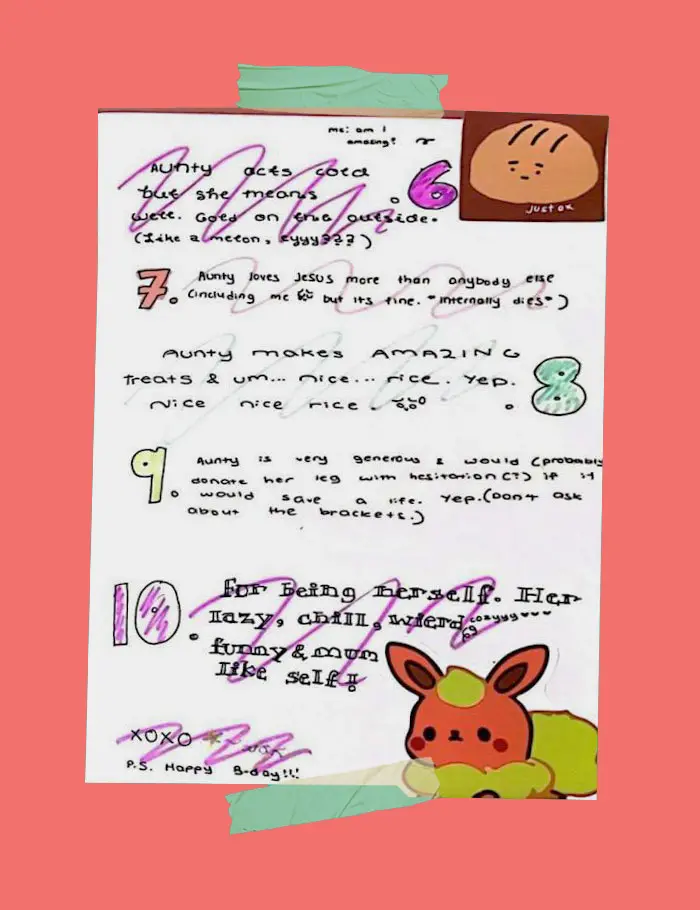 me: am I
amazing?
6
Aunty acts cold
but she means
well. Gold on the outside.
(Like a melon, eyyy???)
just ok
7. Aunty loves Jesus more than anybody else
(including me but its fine. *internally dies*)
Aunty makes AMAZING
treats & um... nice... rice. Yep.
Nice nice rice.
8.
9. Aunty is very generous & would (probably
donate her leg with hesitation(?) if it
would save a life. Yep. (Dont ask
about the brackets.)
10. for being herself. Her
lazy, chill, wierd, cozyyy
funny & mum
like self!
XOXO
P.S. Happy B-day!!!